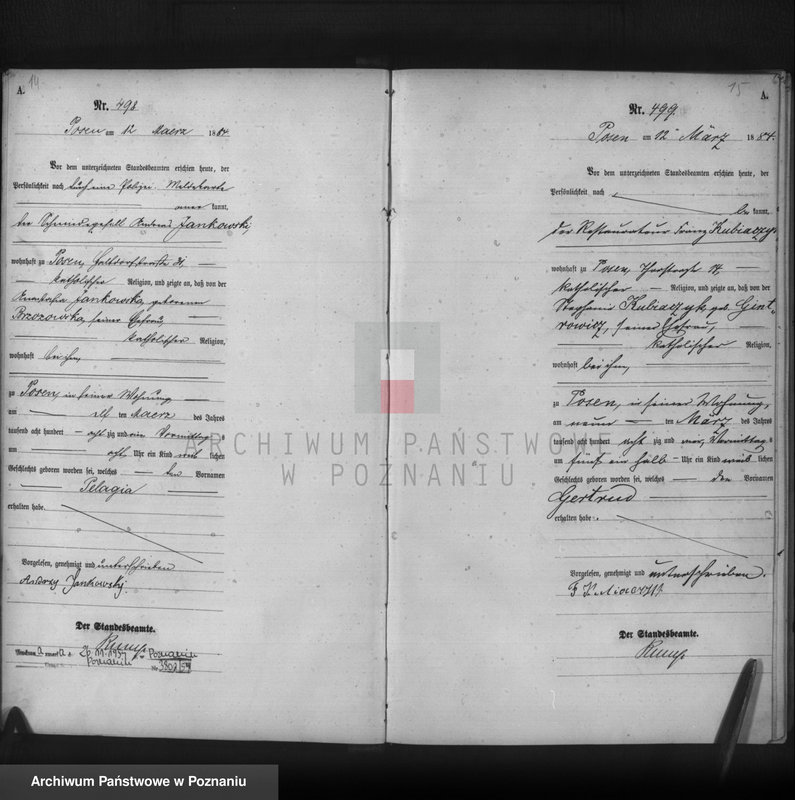 14
A.
Nr. 498
Posen am 12 Maerz 1884
Vor dem unterzeichneten Standesbeamten erschien heute, der
Persönlichkeit nach durch eine Polizei Meldekarte
aner kannt,
der Schmiedegesell Andreas Jankowski,
wohnhaft zu Posen, 31,
katholischer Religion, und zeigte an, daß von der
Anastasia Jankowska, geborenen
Brzozowska, seiner Ehefrau,
katholischer Religion,
wohnhaft bei ihm,
zu Posen, in seiner Wohnung
am elf ten Maerz des Jahres
tausend acht hundert acht zig und vier Vormittags
um acht Uhr ein Kind weib lichen
Geschlechts geboren worden sei, welches den Vornamen
Pelagia
erhalten habe.
Vorgelesen, genehmigt und unterschrieben
Andrzy Jankowsky.
Der Standesbeamte.
Kump
15
A.
Nr. 499
Posen am 12 März 1884.
Vor dem unterzeichneten Standesbeamten erschien heute, der
Persönlichkeit nach
be kannt,
der Restaurateur Franz Kubiaczyk
wohnhaft zu Posen, 14,
katholischer Religion, und zeigte an, daß von der
Stephanie Kubiaczyk geb. Gint-
rowicz, seiner Ehefrau,
katholischer Religion,
wohnhaft bei ihm,
zu Posen, in seiner Wohnung,
am neun ten März des Jahres
tausend acht hundert acht zig und vier, Vormittags
um fünf ein halb Uhr ein Kind weib lichen
Geschlechts geboren worden sei, welches den Vornamen
Gertrud
erhalten habe.
Vorgelesen, genehmigt und unterschrieben.
Der Standesbeamte.
Kump
ARCHIWUM PAŃSTWOWE
W POZNANIU
Archiwum Państwowe w Poznaniu